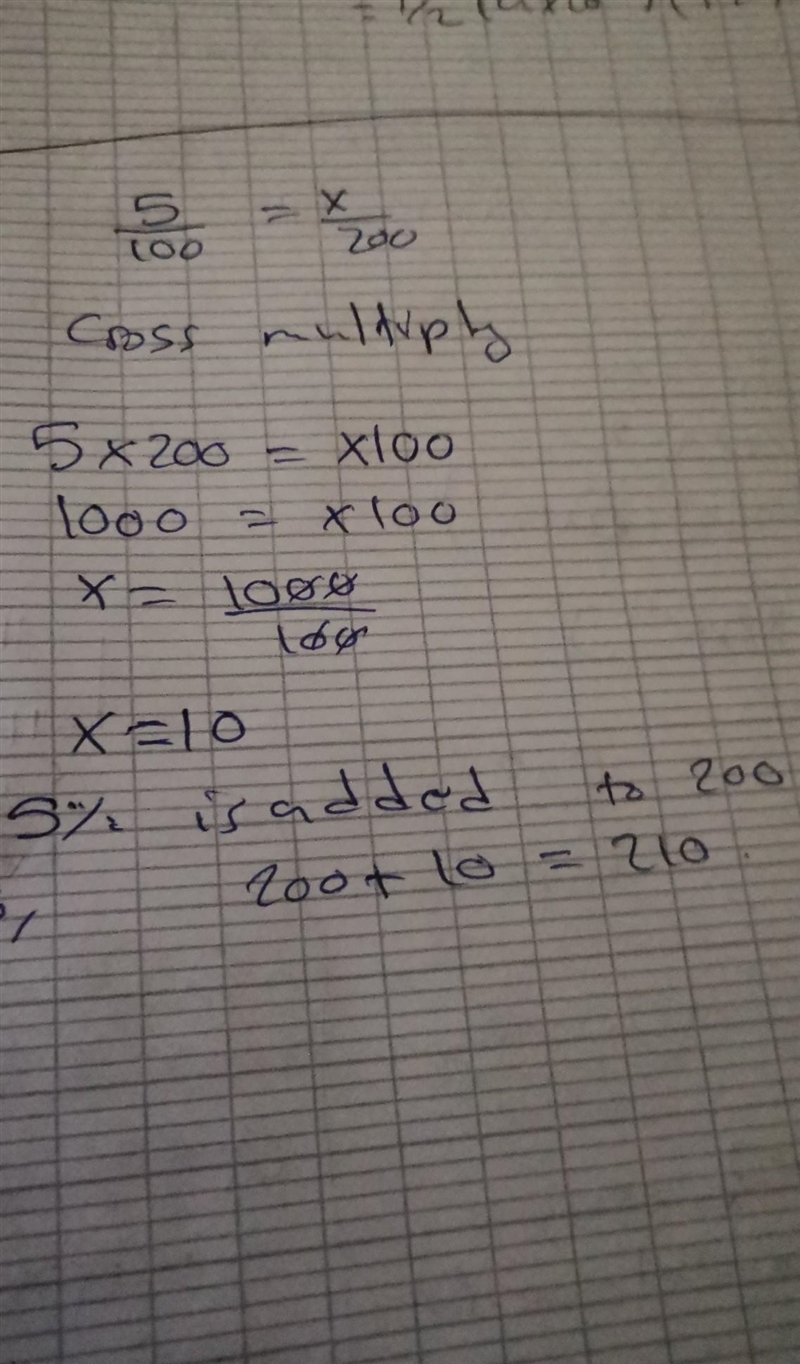 5/100 = x/200
Cross multiply
5 x 200 = x100
1000 = x100
x = 1000/100
x = 10
5% is added to 200
200 + 10 = 210.